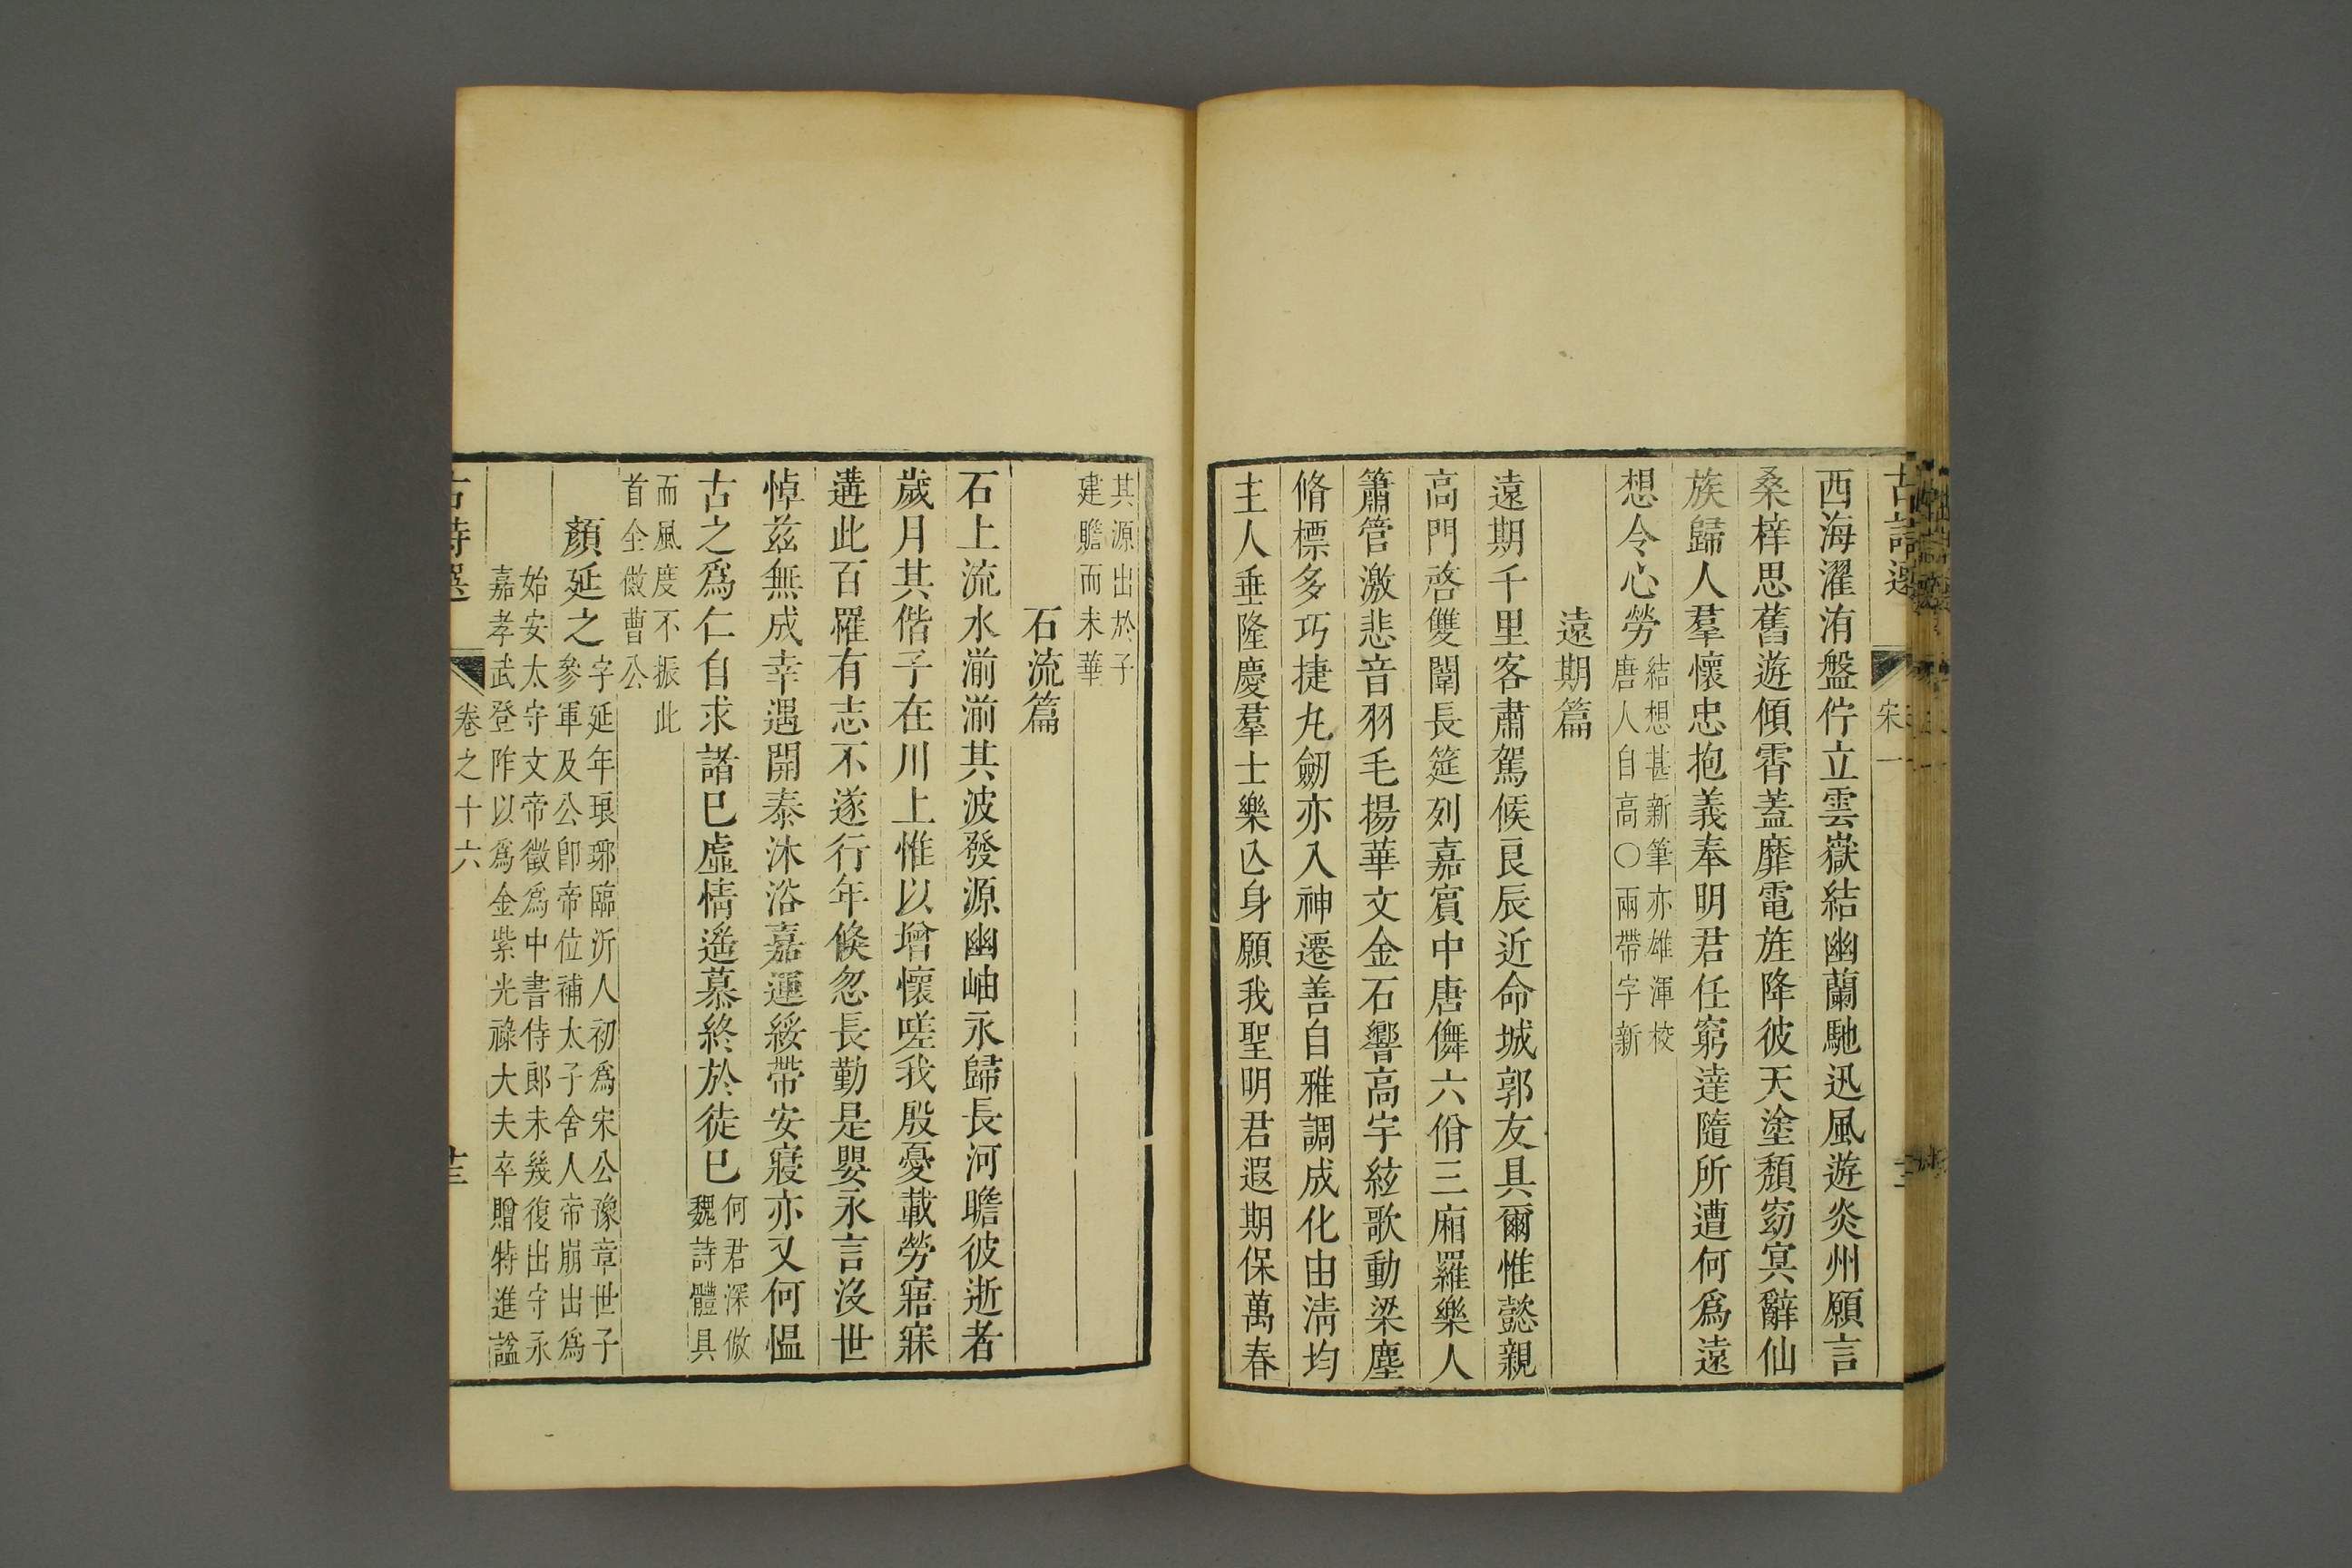 古詩選 宋一
西海濯洧盤佇立雲嶽結幽蘭馳迅風遊炎州願言
桑梓思舊遊傾霄蓋靡電旌降彼天塗頹窈冥辭仙
族歸人羣懷忠抱義奉明君任窮達隨所遭何爲遠
想令心勞
結想甚新筆亦雄渾校
唐人自高〇兩帶字新
遠期篇
遠期千里客肅駕候良辰近命城郭友具爾惟懿親
高門啓雙闈長筵列嘉賓中唐儛六佾三廂羅樂人
簫管激悲音羽毛揚華文金石響高宇絃歌動梁塵
脩標多巧捷丸劒亦入神遷善自雅調成化由淸均
主人垂隆慶羣士樂亾身願我聖明君遐期保萬春
其源出於子
建贍而未華
石流篇
石上流水湔湔其波發源幽岫永歸長河瞻彼逝者
歲月其偕子在川上惟以增懷嗟我殷憂載勞寤寐
遘此百罹有志不遂行年倏忽長勤是嬰永言沒世
悼茲無成幸遇開泰沐浴嘉運綏帶安寢亦又何慍
古之爲仁自求諸已虛情遥慕終於徒已
何君深倣
魏詩體具
而風度不振此
首全倣曹公
顏延之
字延年琅琊臨沂人初爲宋公豫章世子
參軍及公卽帝位補太子舍人帝崩出爲
始安太守文帝徵爲中書侍郎未幾復出守永
嘉孝武登阼以爲金紫光祿大夫卒贈特進謚
古詩選 卷之十六